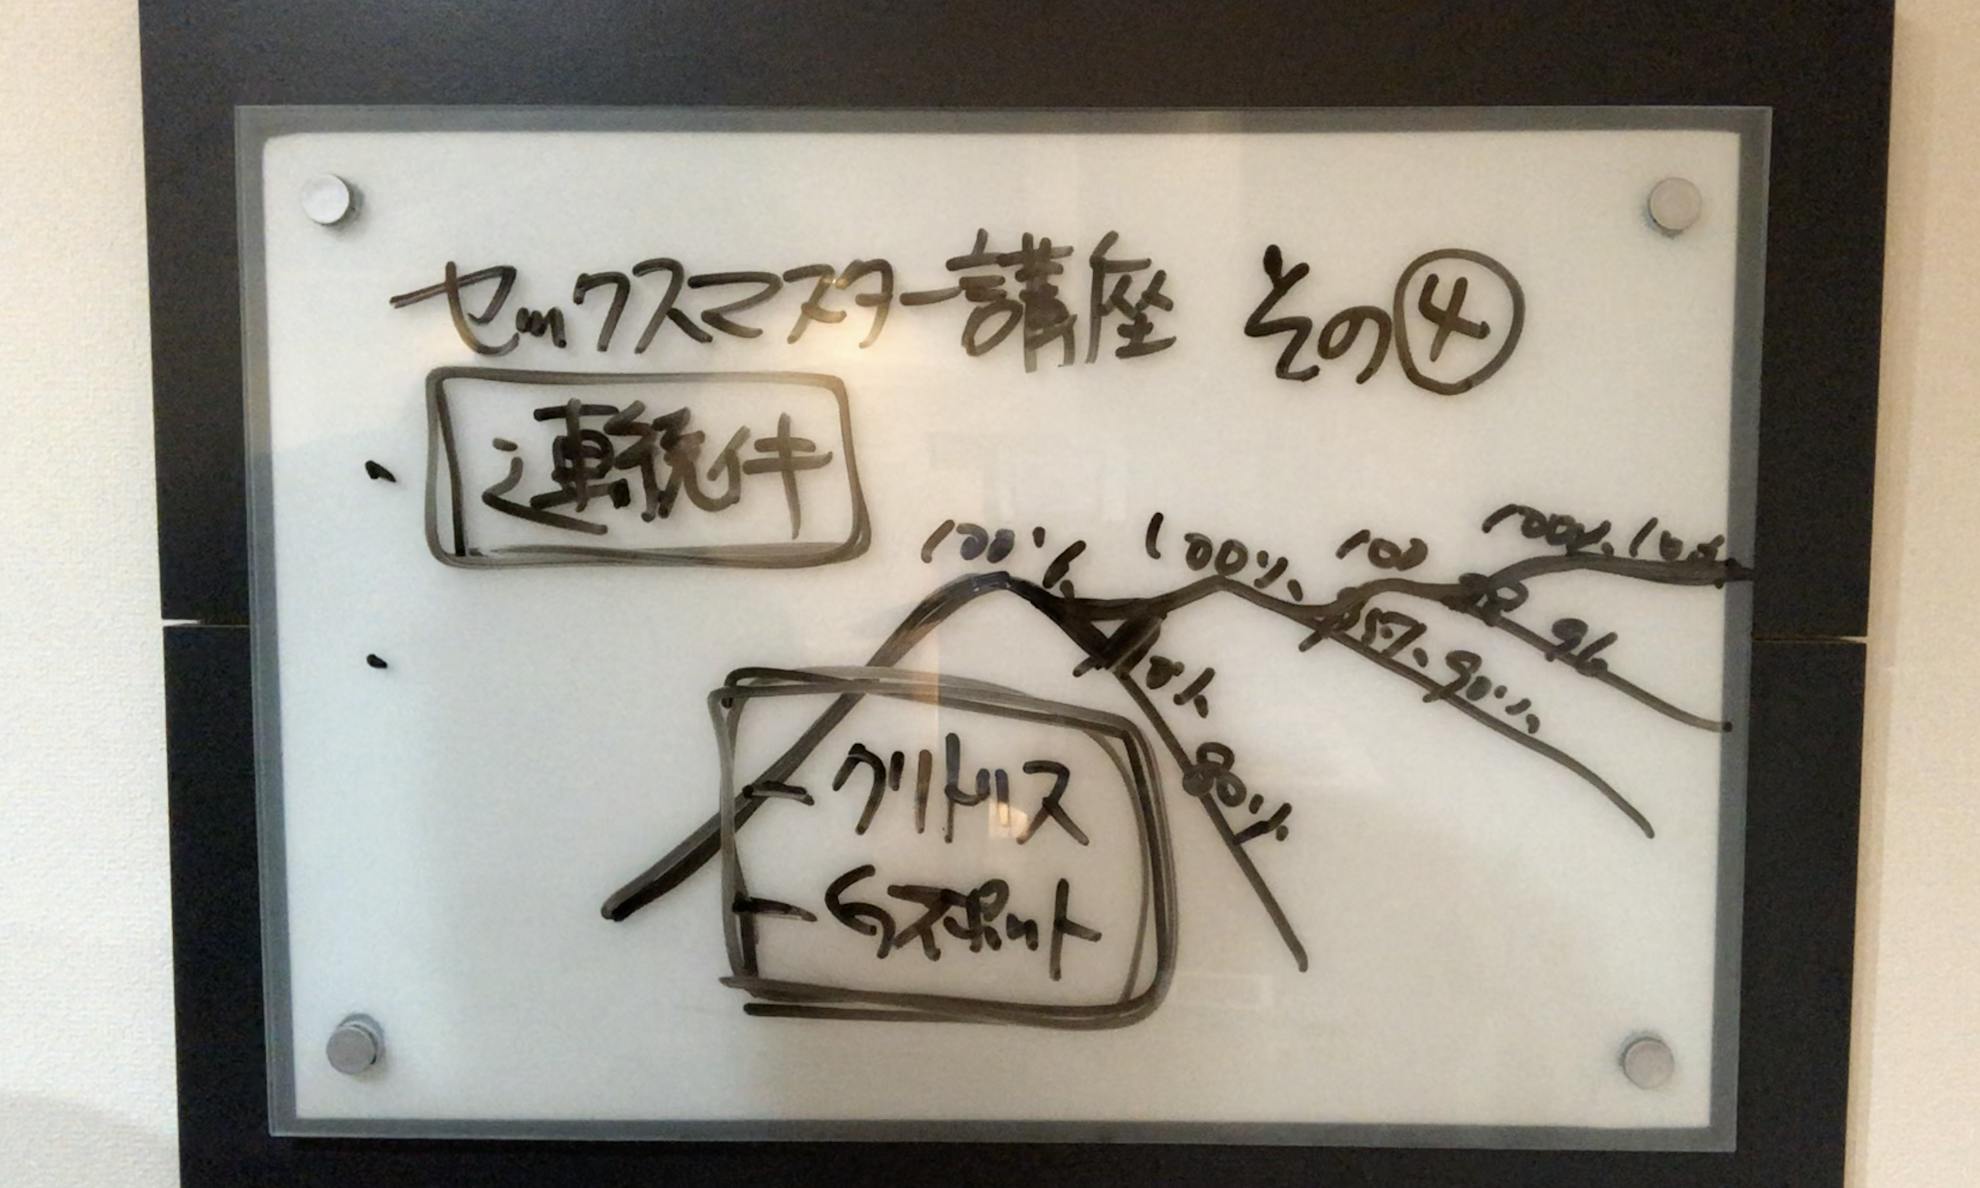 セックスマスター講座 その④
連続イキ
100% 100% 100 100%
96
90%
80%
クリトリス
Gスポット